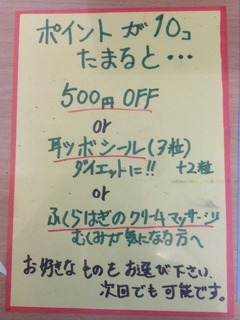 ポイントが10コ
たまると…
500円 OFF
or
耳ツボシール(3粒)
ダイエットに!! +2粒
or
ふくらはぎのクリームマッサージ!!
むくみが気になる方へ
お好きなものをお選び下さい。
次回でも可能です。